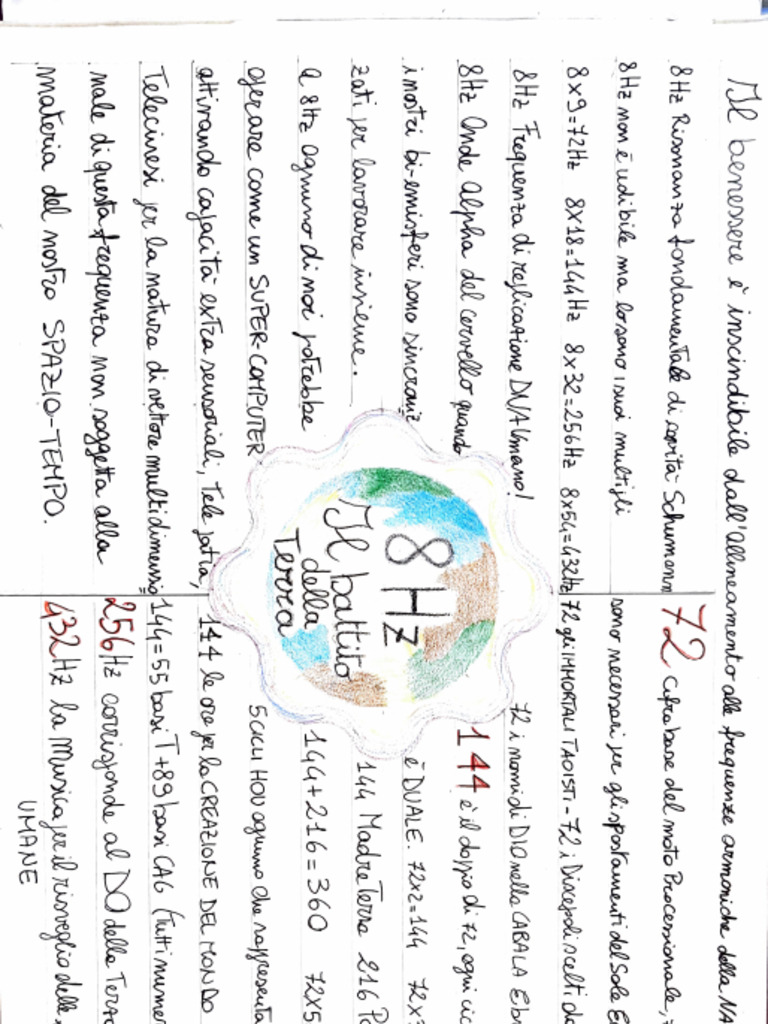 Il benessere è inscindibile dall'allineamento alle frequenze armoniche della
8Hz Risonanza fondamentale di cavità Schumann
8Hz non è udibile ma lo sono i suoi multipli
8x9=72Hz 8x18=144Hz 8x32=256Hz 8x54=432Hz
8Hz Frequenza di replicazione DNA Umano!
8Hz Onde Alpha del cervello quando
i nostri bi-emisferi sono sincroniz
zati per lavorare insieme.
A 8Hz ognuno di noi potrebbe
operare come un SUPER-COMPUTER
attivando capacità extra sensoriali, Telepatia,
Telecinesi per la natura di vettore multidimensio
nale di questa frequenza non soggetta alla
materia del nostro SPAZIO-TEMPO.
8Hz
Il battito
della
Terra
72 cifra base del moto Processionale,
sono necessari per gli spostamenti del Sole
72 gli IMMORTALI TAOISTI - 72 i Discepoli scelti da
72 i nomi di DIO nella CABALA Ebr
144 è il doppio di 72, ogni cic
è DUALE. 72x2=144 72x
144 Madre Terra 216
144+216=360 72x5
5 CICLI HOU ognuno che rappresenta
144 le ore per la CREAZIONE DEL MONDO
144=55 basi T+89 basi CAG (Tutti numer
256Hz corrisponde al DO della Terra
432Hz la Musica per il risveglio delle
UMANE